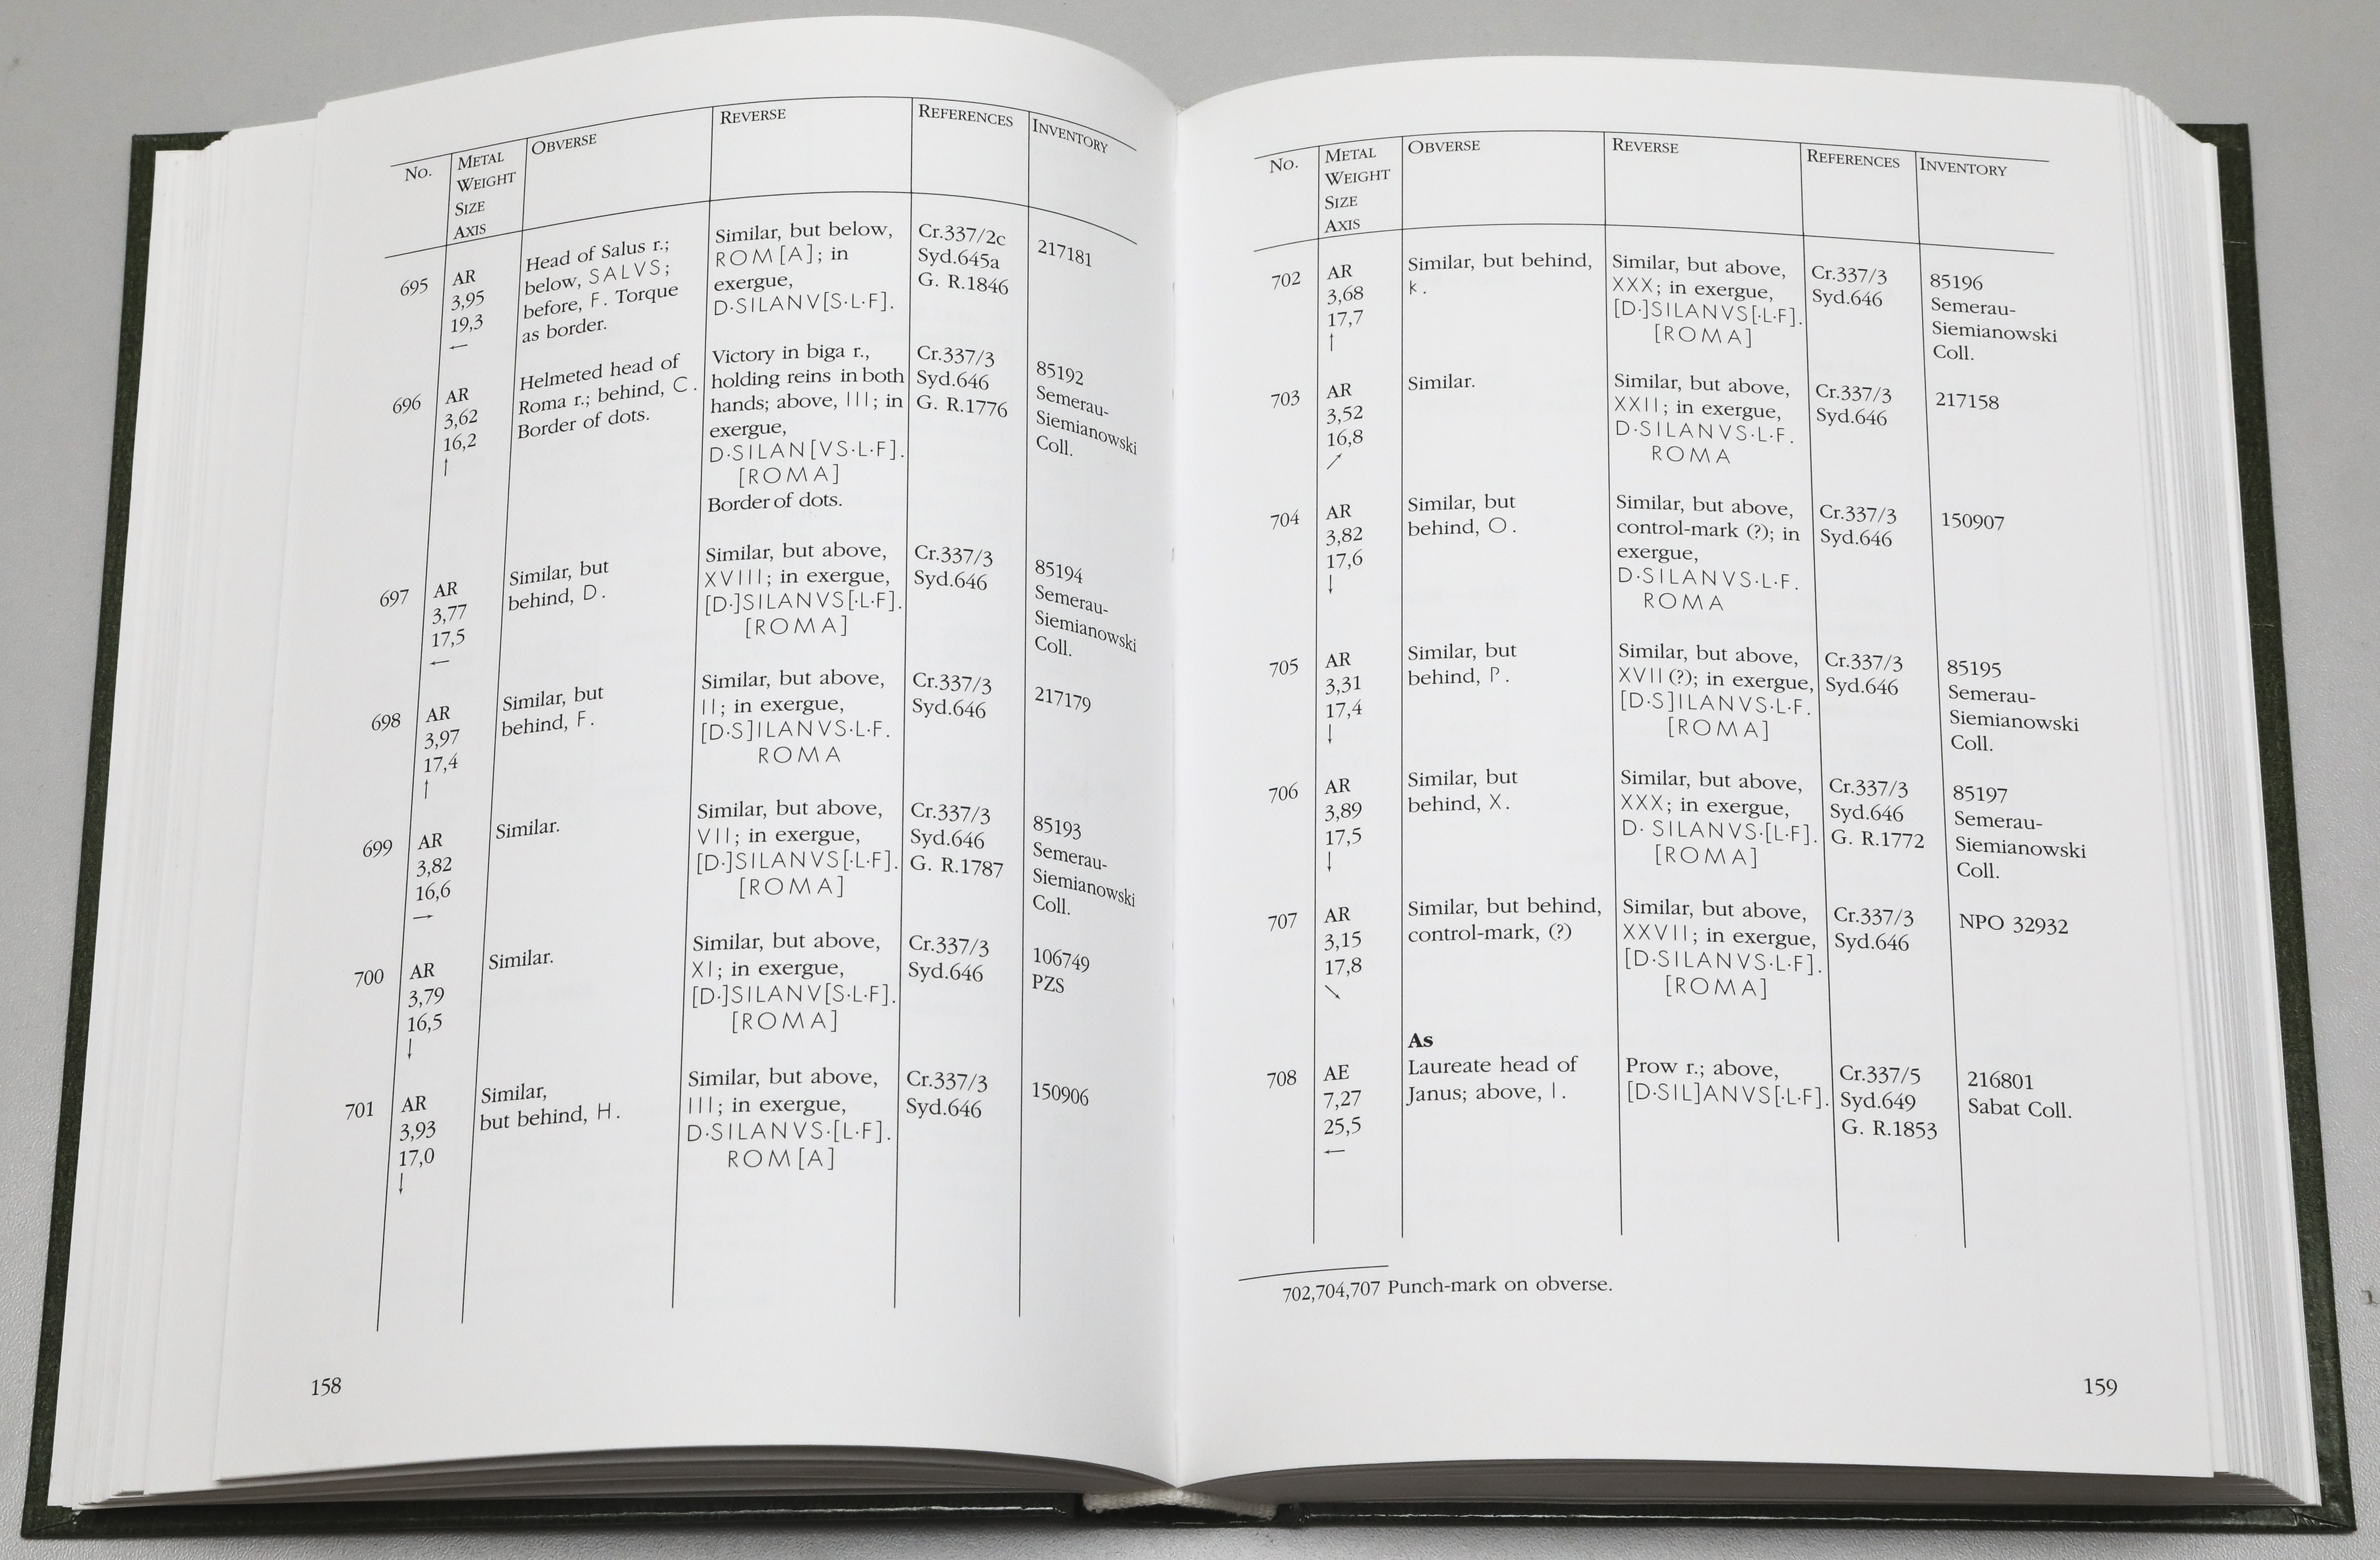 No.
METAL
WEIGHT
SIZE
AXIS
OBVERSE
REVERSE
REFERENCES
INVENTORY
695
AR
3,95
19,3
←
Head of Salus r.;
below, SALVS;
before, F. Torque
as border.
Similar, but below,
ROM[A]; in
exergue,
D·SILANV[S·L·F].
Cr.337/2c
Syd.645a
G. R.1846
217181
696
AR
3,62
16,2
↑
Helmeted head of
Roma r.; behind, C.
Border of dots.
Victory in biga r.,
holding reins in both
hands; above, III; in
exergue,
D·SILAN[VS·L·F].
[ROMA]
Border of dots.
Cr.337/3
Syd.646
G. R.1776
85192
Semerau-
Siemianowski
Coll.
697
AR
3,77
17,5
←
Similar, but
behind, D.
Similar, but above,
XVIII; in exergue,
[D·]SILANVS[·L·F].
[ROMA]
Cr.337/3
Syd.646
85194
Semerau-
Siemianowski
Coll.
698
AR
3,97
17,4
↑
Similar, but
behind, F.
Similar, but above,
II; in exergue,
[D·S]ILANVS·L·F.
ROMA
Cr.337/3
Syd.646
217179
699
AR
3,82
16,6
→
Similar.
Similar, but above,
VII; in exergue,
[D·]SILANVS[·L·F].
[ROMA]
Cr.337/3
Syd.646
G. R.1787
85193
Semerau-
Siemianowski
Coll.
700
AR
3,79
16,5
↓
Similar.
Similar, but above,
XI; in exergue,
[D·]SILANV[S·L·F].
[ROMA]
Cr.337/3
Syd.646
106749
PZS
701
AR
3,93
17,0
↓
Similar,
but behind, H.
Similar, but above,
III; in exergue,
D·SILANVS·[L·F].
ROM[A]
Cr.337/3
Syd.646
150906
158
No.
METAL
WEIGHT
SIZE
AXIS
OBVERSE
REVERSE
REFERENCES
INVENTORY
702
AR
3,68
17,7
↑
Similar, but behind,
k.
Similar, but above,
XXX; in exergue,
[D·]SILANVS[·L·F].
[ROMA]
Cr.337/3
Syd.646
85196
Semerau-
Siemianowski
Coll.
703
AR
3,52
16,8
↗
Similar.
Similar, but above,
XXII; in exergue,
D·SILANVS·L·F.
ROMA
Cr.337/3
Syd.646
217158
704
AR
3,82
17,6
↓
Similar, but
behind, O.
Similar, but above,
control-mark (?); in
exergue,
D·SILANVS·L·F.
ROMA
Cr.337/3
Syd.646
150907
705
AR
3,31
17,4
↓
Similar, but
behind, P.
Similar, but above,
XVII (?); in exergue,
[D·S]ILANVS·L·F.
[ROMA]
Cr.337/3
Syd.646
85195
Semerau-
Siemianowski
Coll.
706
AR
3,89
17,5
↓
Similar, but
behind, X.
Similar, but above,
XXX; in exergue,
D· SILANVS·[L·F].
[ROMA]
Cr.337/3
Syd.646
G. R.1772
85197
Semerau-
Siemianowski
Coll.
707
AR
3,15
17,8
↘
Similar, but behind,
control-mark, (?)
Similar, but above,
XXVII; in exergue,
[D·SILANVS·L·F].
[ROMA]
Cr.337/3
Syd.646
NPO 32932
As
708
AE
7,27
25,5
←
Laureate head of
Janus; above, I.
Prow r.; above,
[D·SIL]ANVS[·L·F].
Cr.337/5
Syd.649
G. R.1853
216801
Sabat Coll.
702,704,707 Punch-mark on obverse.
159